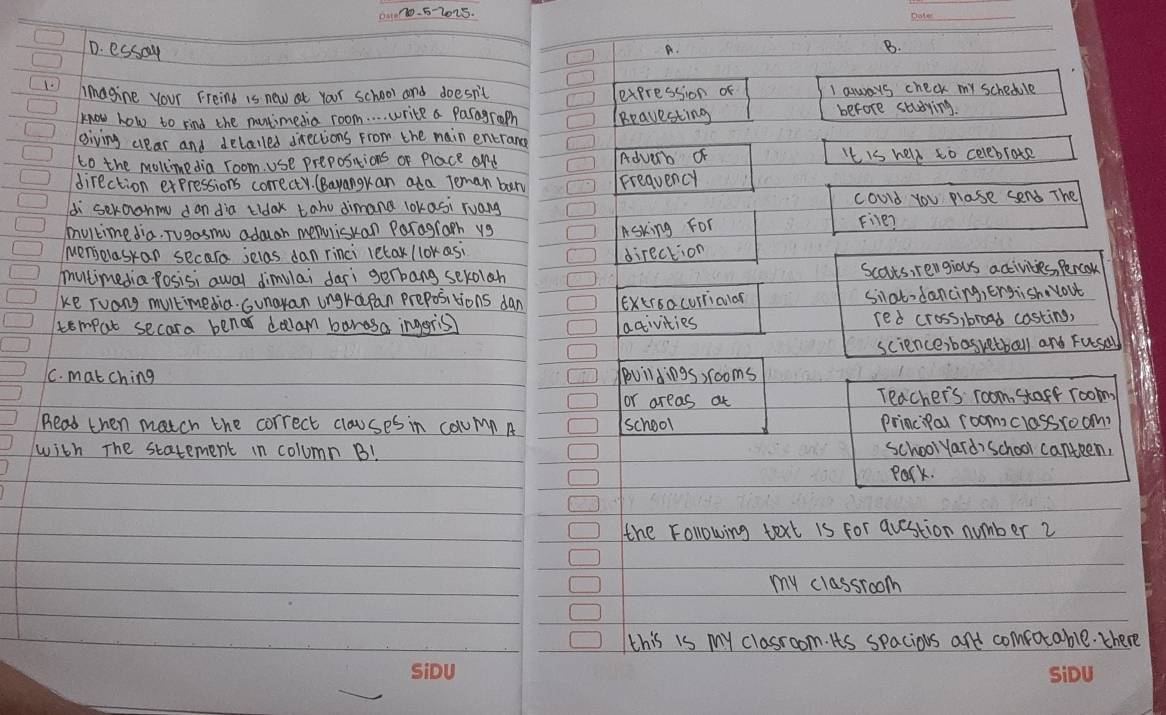 Date 20-5-2025.
D. essay
1. imagine your Freind is new at your school and doesn't
know how to find the multimedia room.... write a Paragraph
giving clear and detailed directions From the main entrance
to the multimedia room. use Prepositions of Place and
direction expressions correcty. (Bayangkan ada Teman baru
di sekolahmu dan dia tidak tahu dimana lokasi ruang
multimedia. Tugasmu adalah menuliskan Paragraph yg
menjelaskan secara jelas dan rinci letak/lokasi
multimedia. Posisi awal dimulai dari gerbang sekolah
ke ruang multimedia. Gunakan ungkapan Prepositions dan
tempat secara benar dalam bahasa inggris)
C. matching
Read then match the correct clauses in column A
with The statement in column B!
SiDU
Date
A.
B.
expression of
Requesting
I always check my schedule
before studying.
Adverb of
Frequency
It is held to celebrate
Asking For
direction
could you please send The
File?
Extracurricular
activities
Scouts, religious activities, Pencak
silat, dancing, English, Youth
red cross, broad casting,
science, basketball and Futsal
Buildings, rooms
or areas at
School
Teacher's room, staff room,
Principal room, classroom,
school yard, school canteen,
Park.
the Following text is For question number 2
my classroom
this is my classroom. Its spacious and comfotable. there
SiDU